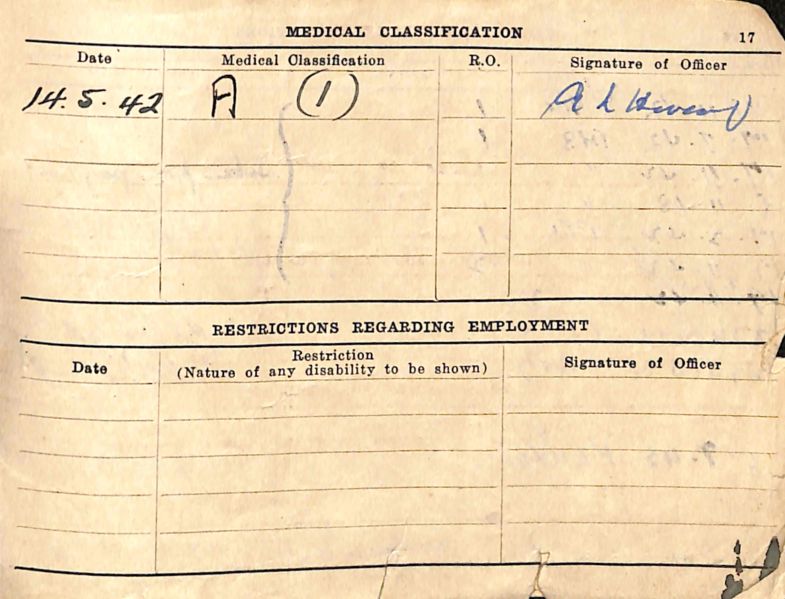 MEDICAL CLASSIFICATION 17
Date Medical Classification R.O. Signature of Officer
14.5.42 A (1)
RESTRICTIONS REGARDING EMPLOYMENT
Date Restriction (Nature of any disability to be shown) Signature of Officer